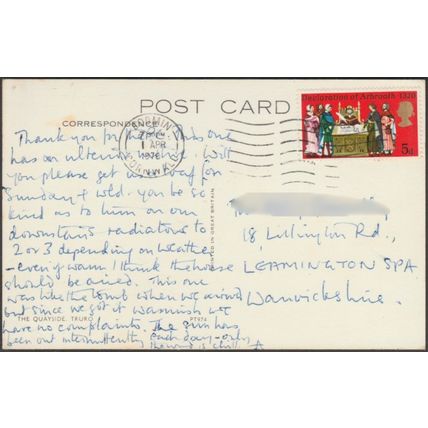 POST CARD
CORRESPONDENCE
Declaration of Arbroath 1320
5d
BODMIN
1 APR
1970
CORNWALL
Thank you for the This one
has an ulterior motive. Will
you please get a loaf for
Sunday & wld. you be so
kind as to turn on our
downstairs radiators to
2 or 3 depending on weather
- even if warm I think the house
should be aired. This one
was like the tomb when we arrived
but since we got it warmish we
have no complaints. The sun has
been out intermittently each day - only
the wind is chill. A
18, Lillington Rd.,
LEAMINGTON SPA
Warwickshire.
PRINTED IN GREAT BRITAIN
THE QUAYSIDE, TRURO
PT974